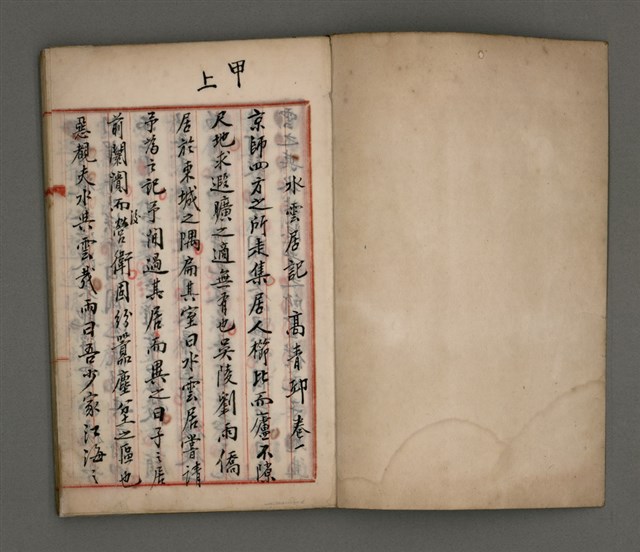 甲
上
水雲居記　高青邱　卷一
京師四方之所走集居人櫛比而廬不隙
尺地求遐曠之適無有也吳陵劉雨僑
居於東城之隅扁其室曰水雲居嘗請
予為之記予間過其居而異之曰子之居
前闤闠而後營衛固紛囂塵坌之區也
惡覩夫水與雲哉雨曰吾少家江海之